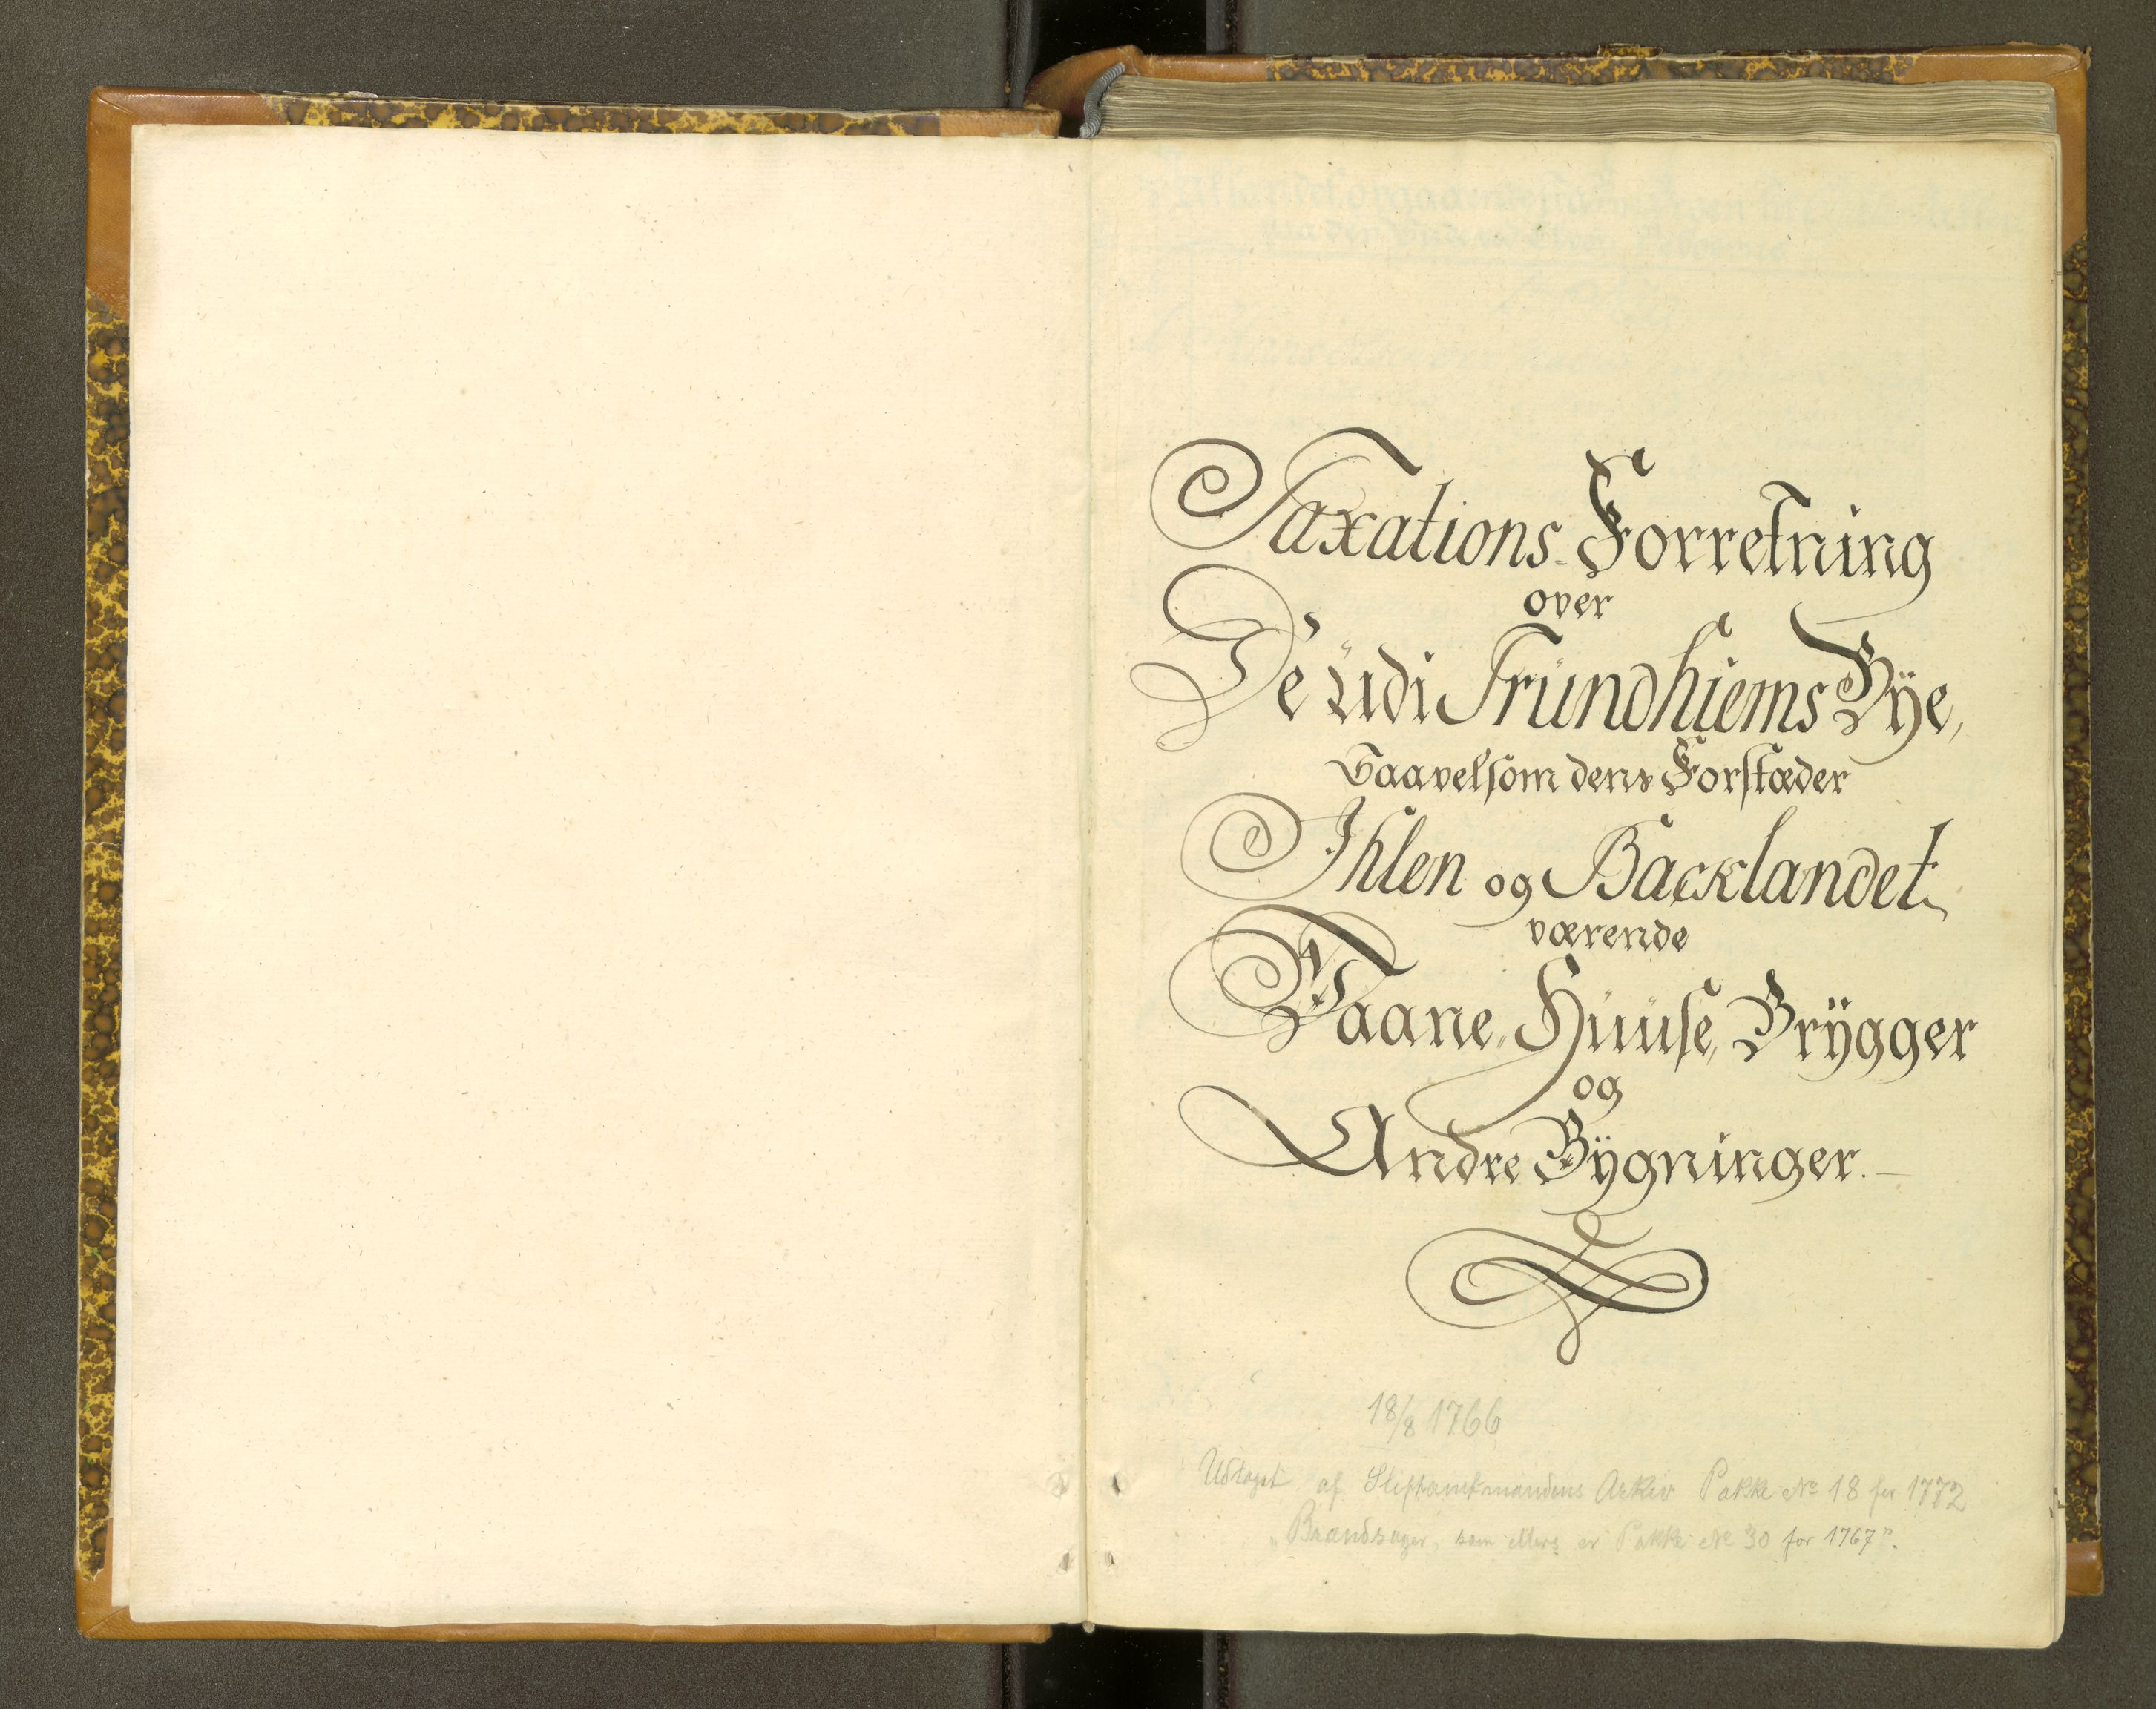 Taxations-Forretning
over
De üdi Tründhiems Bÿe,
Saavelsom dens Forstæder
Ihlen og Backlandet
værende
Vaane, Hüüse, Brÿgger
og
Andre Bÿgninger.
18/8 1766
Udtaget af Stiftamtmandens Arkiv Pakke No 18 for 1772
"Brandsager, som ellers er Pakke No 30 for 1767".